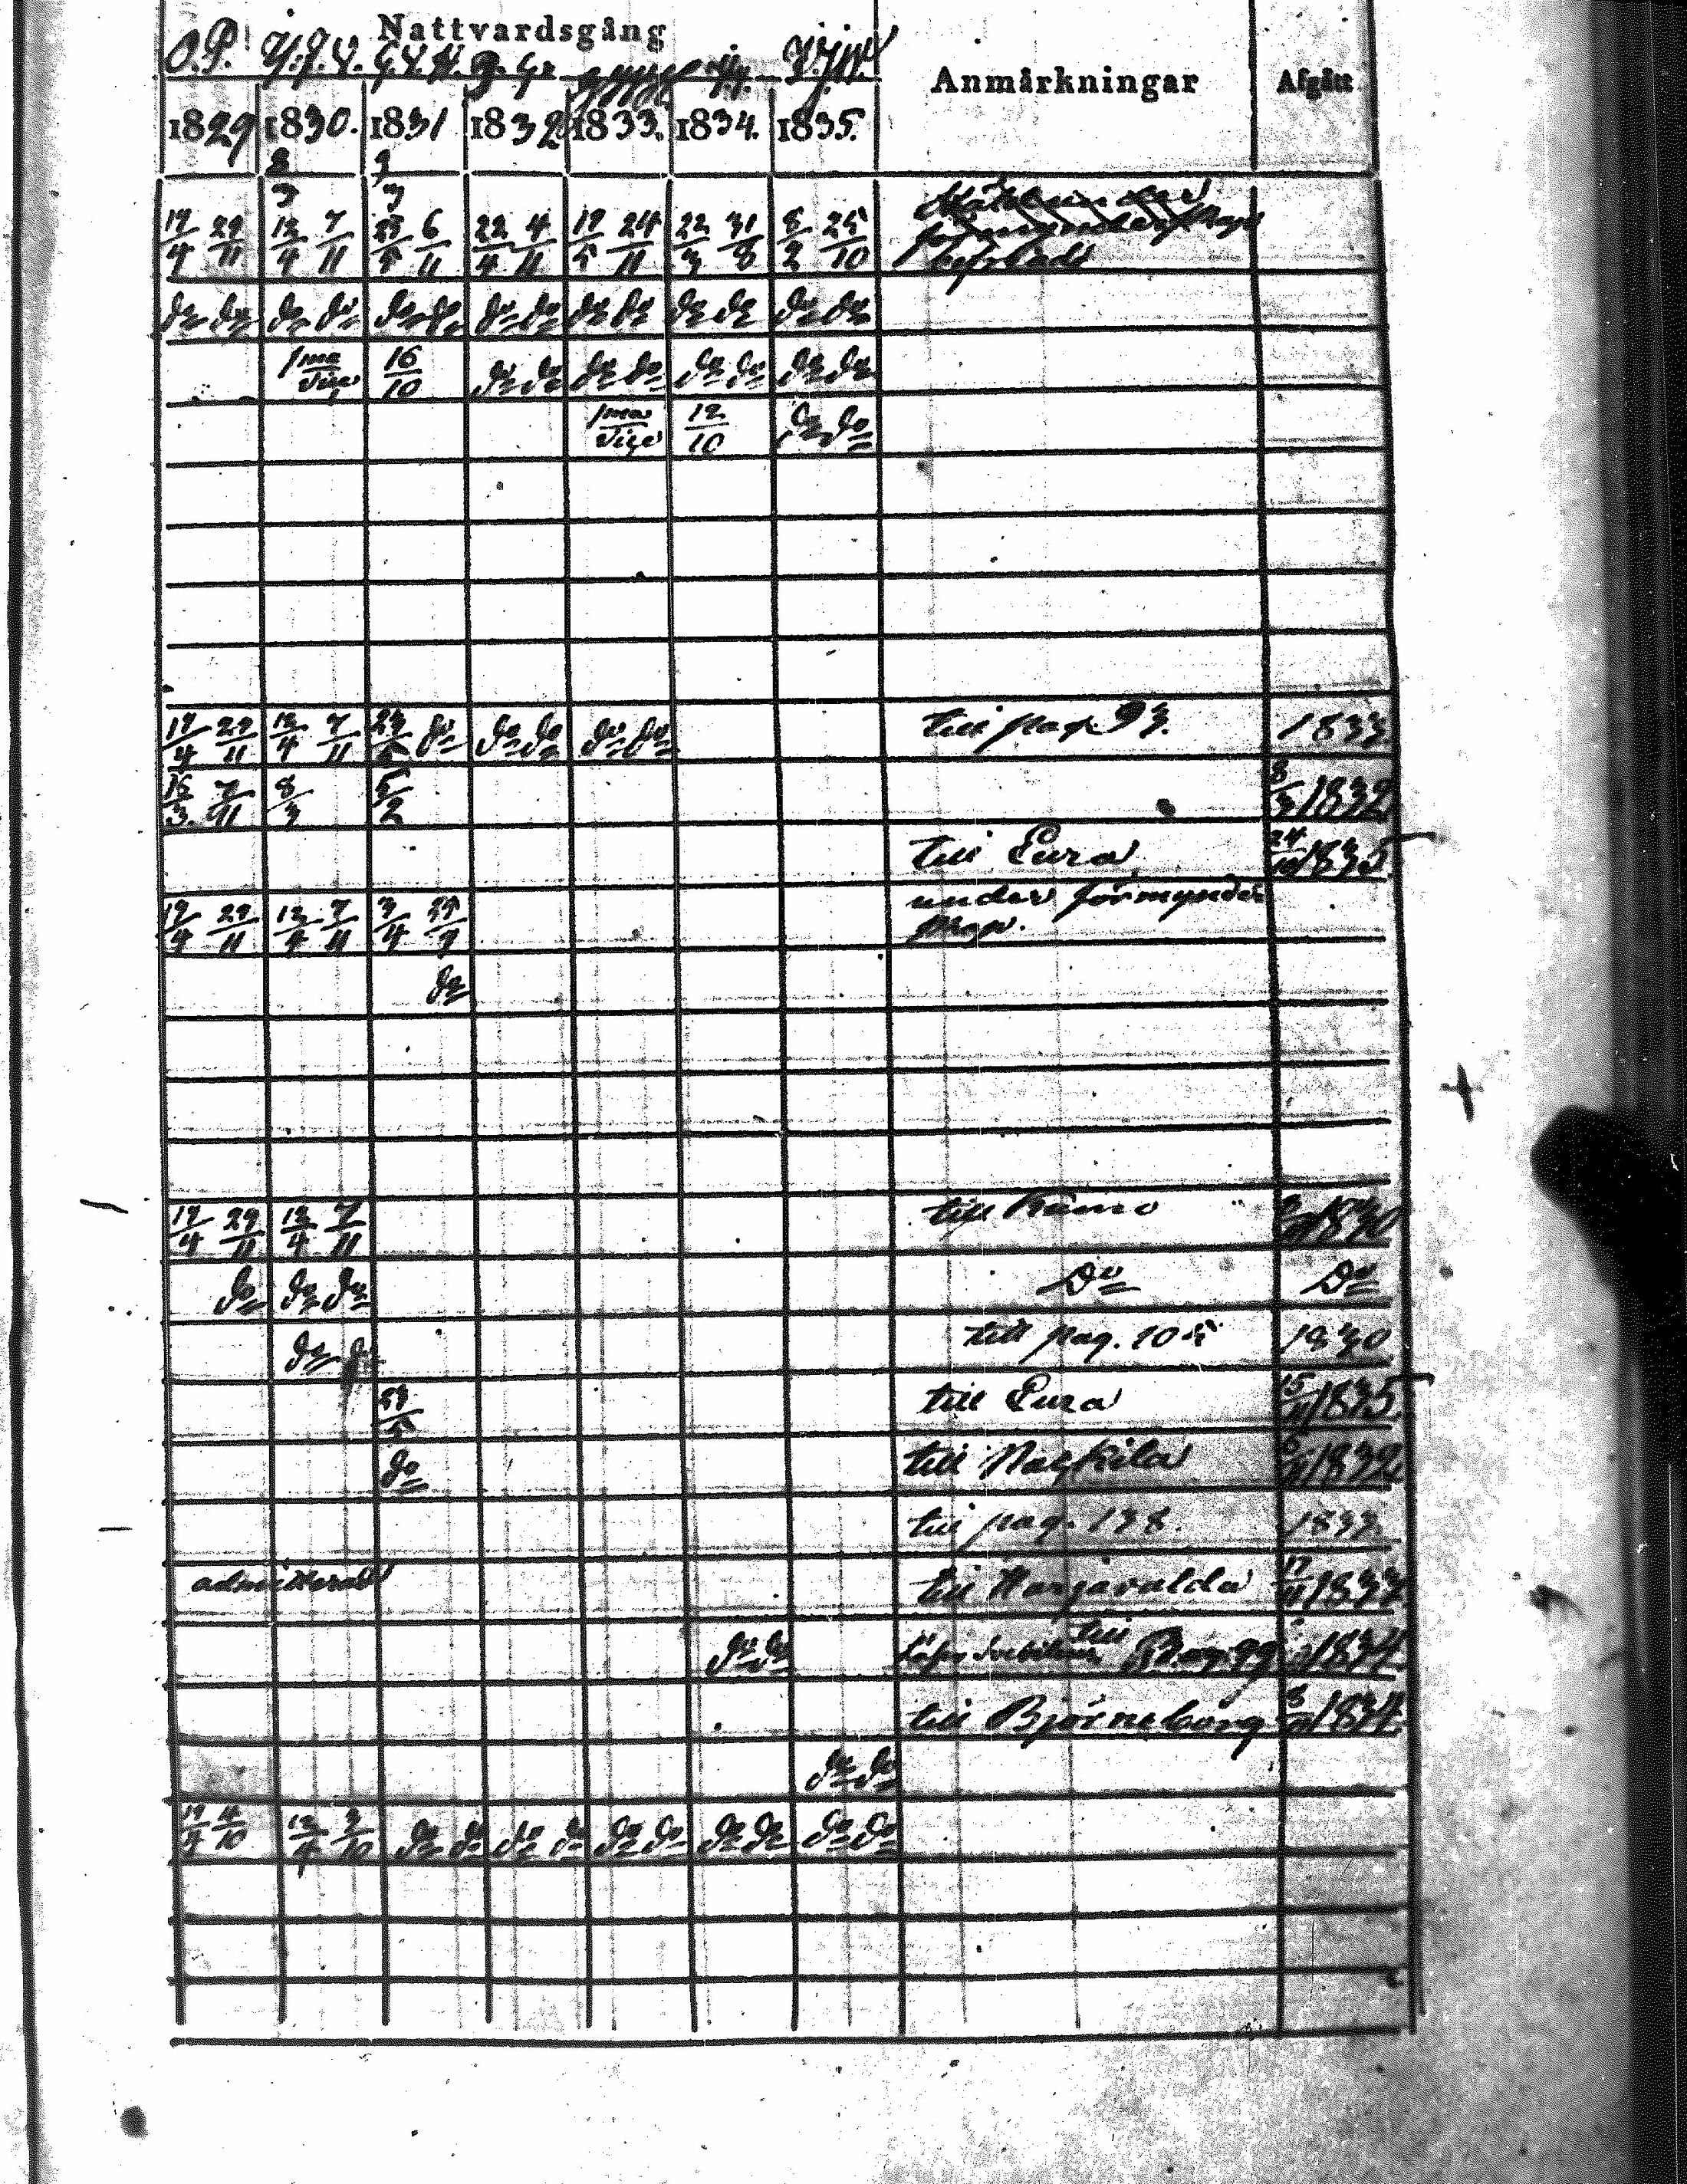 Nattvardsgång
O.P.
Anmärkningar Afgått
1829 1830. 1831 1832 1833. 1834. 1835.
19/4 29/11 12/4 7/11 23/5 6/11 22/4 4/11 19/5 24/11 22/3 31/8 8/2 25/10
do do do do do do do do do do do do do do
1ma vice 16/10 do do do do do do do do
1ma vice 12/10 do do
19/4 29/11 12/4 7/11 23/5 do do do do do till pag. 93. 1833
15/3 7/11 8/3 5/2 8/3 1832
till Eura 24/10 1835
19/4 29/11 12/4 7/11 3/4 25/9 under förmynder
skap.
do
19/4 29/11 12/4 7/11 till Kumo 1830
do do do Do Do
do do till pag. 105 1830
29/5 till Eura 15/11 1835
do till Nakkila 1832
till pag. 138. 1833
admitterad till Harjavalda 17/11 1833
do do till Pag. 99 1834
till Björneborg 1834
do do
19/4 4/10 12/4 3/10 do do do do do do do do do do